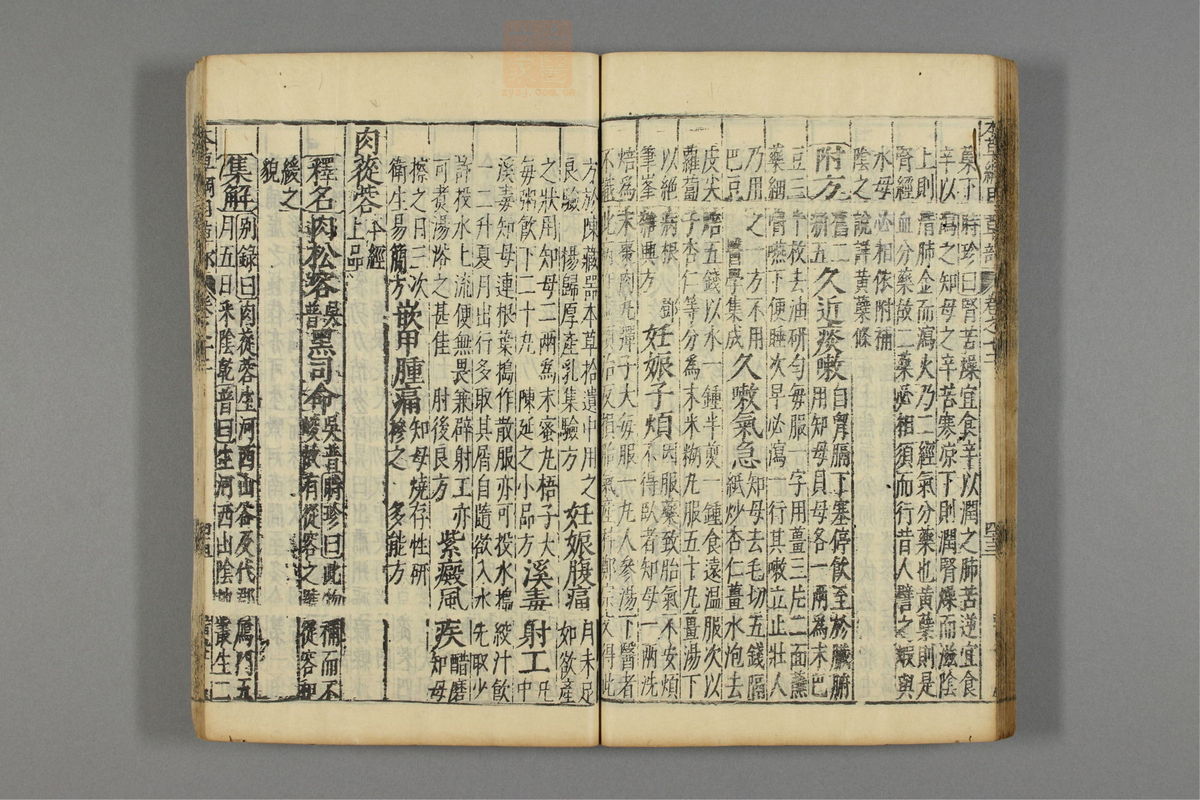 藥子　時珍曰腎苦燥宜食辛以潤之肺苦逆宜食
辛以瀉之知母之辛苦寒凉下則潤腎燥而滋陰
上則清肺金而瀉火乃二經氣分藥也黄蘗則是
腎經血分藥故二藥必相須而行昔人譬之蝦與
水母必相依附補
陰之說詳黄蘗條
附方舊二新五久近痰嗽自胷膈下塞停飲至於臓腑
用知母貝母各一兩爲末巴
豆三十枚去油研勻每服一字用薑三片二面蘸
藥細嚼下便睡次早必瀉一行其嗽立止壯人
乃用之一方不用
巴豆　醫學集成久嗽氣急知母去毛切五錢隔
紙炒杏仁薑水泡去
皮尖焙五錢以水一鍾半煎一鍾食遠温服次以
蘿蔔子杏仁等分爲末米糊丸服五十丸薑湯下
以絕病根　鄧
筆峯雜興方妊娠子煩因服藥致胎氣不安煩
不得臥者知母一兩洗
焙爲末棗肉丸彈子大每服一丸人參湯下醫者
方於陳藏器本草拾遺中用之
良驗　楊歸厚產乳集驗方妊娠腹痛月未足
如欲產
之狀用知母二兩爲末蜜丸梧子大
每粥飲下二十丸　陳延之小品方溪毒射工
溪毒知母連根葉搗作散服亦可投水搗絞汁飲
一二升夏月出行多取其屑自隨欲入水先取少
許投水上流便無畏兼辟射工亦
可煑湯浴之甚佳　肘後良方紫癜風疾醋磨
知母
擦之日三次
衛生易簡方嵌甲腫痛知母燒存性研
摻之　多能方
肉蓯蓉本經上品
釋名肉松容吳普黑司命吳普時珍曰此物補而不
峻故有從容之號從容和
緩之
貌
集解别録曰肉蓯蓉生河西山谷及代郡鴈門五
月五日采陰乾普曰生河西山陰地叢生二